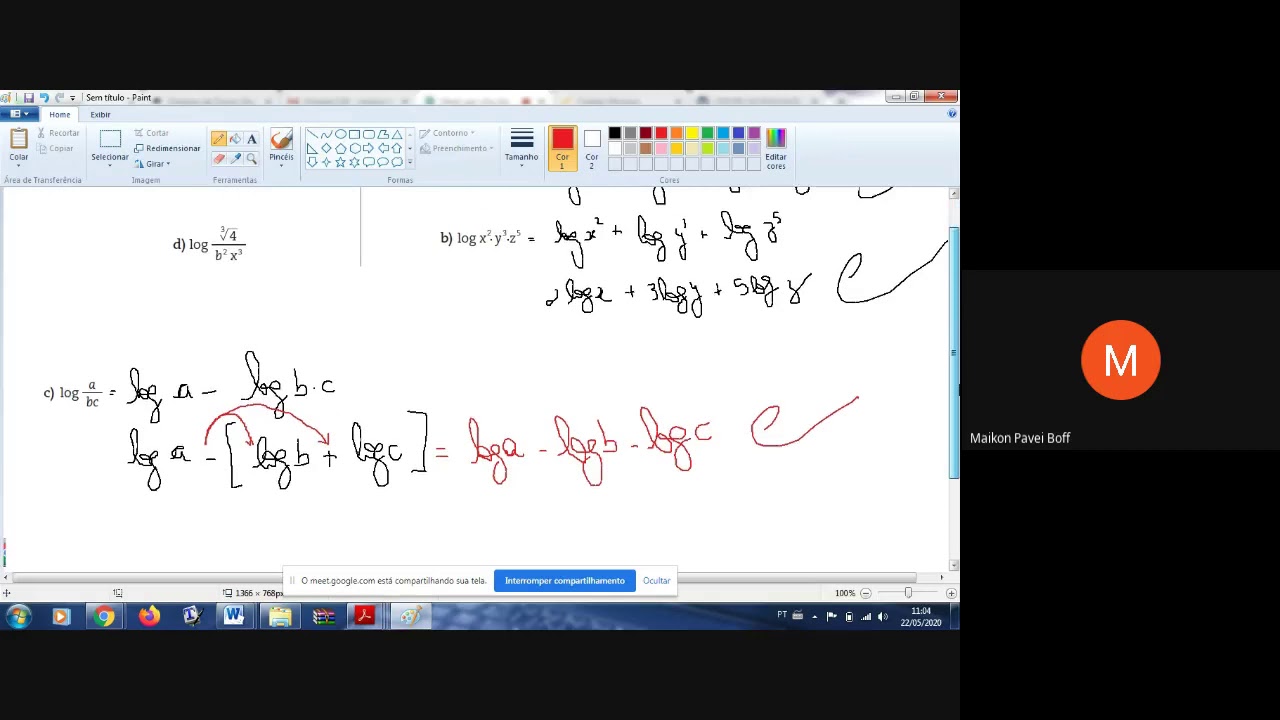 Sem título - Paint
Home Exibir
Colar
Recortar
Copiar
Área de Transferência
Selecionar
Cortar
Redimensionar
Girar
Imagem
Ferramentas
Pincéis
Contorno
Preenchimento
Formas
Tamanho
Cor 1
Cor 2
Editar cores
Cores
d) log ∛4 / b² x³
b) log x²·y³·z⁵ = log x² + log y³ + log z⁵
2 log x + 3 log y + 5 log z
c) log a/bc = log a - log b·c
log a - [log b + log c] = log a - log b - log c
M
Maikon Pavei Boff
O meet.google.com está compartilhando sua tela. Interromper compartilhamento Ocultar
1366 × 768px
100%
PT
11:04
22/05/2020